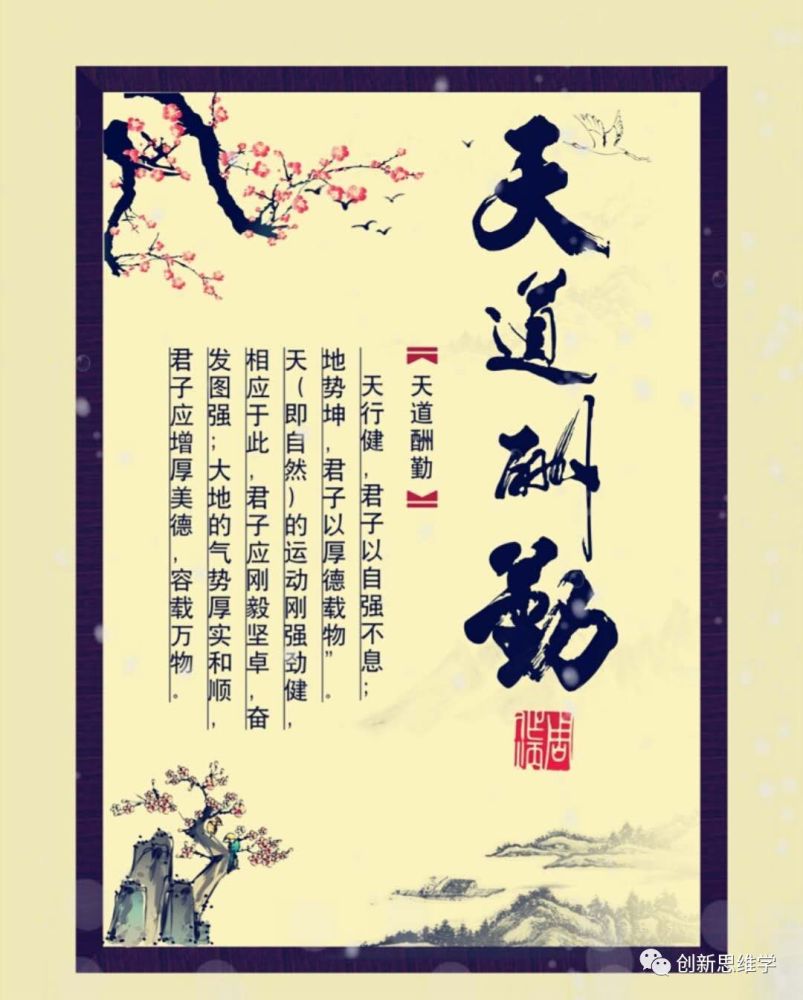 天道酬勤
【天道酬勤】
天行健，君子以自强不息；
地势坤，君子以厚德载物”。
天（即自然）的运动刚强劲健，
相应于此，君子应刚毅坚卓，奋
发图强；大地的气势厚实和顺，
君子应增厚美德，容载万物。
创新思维学